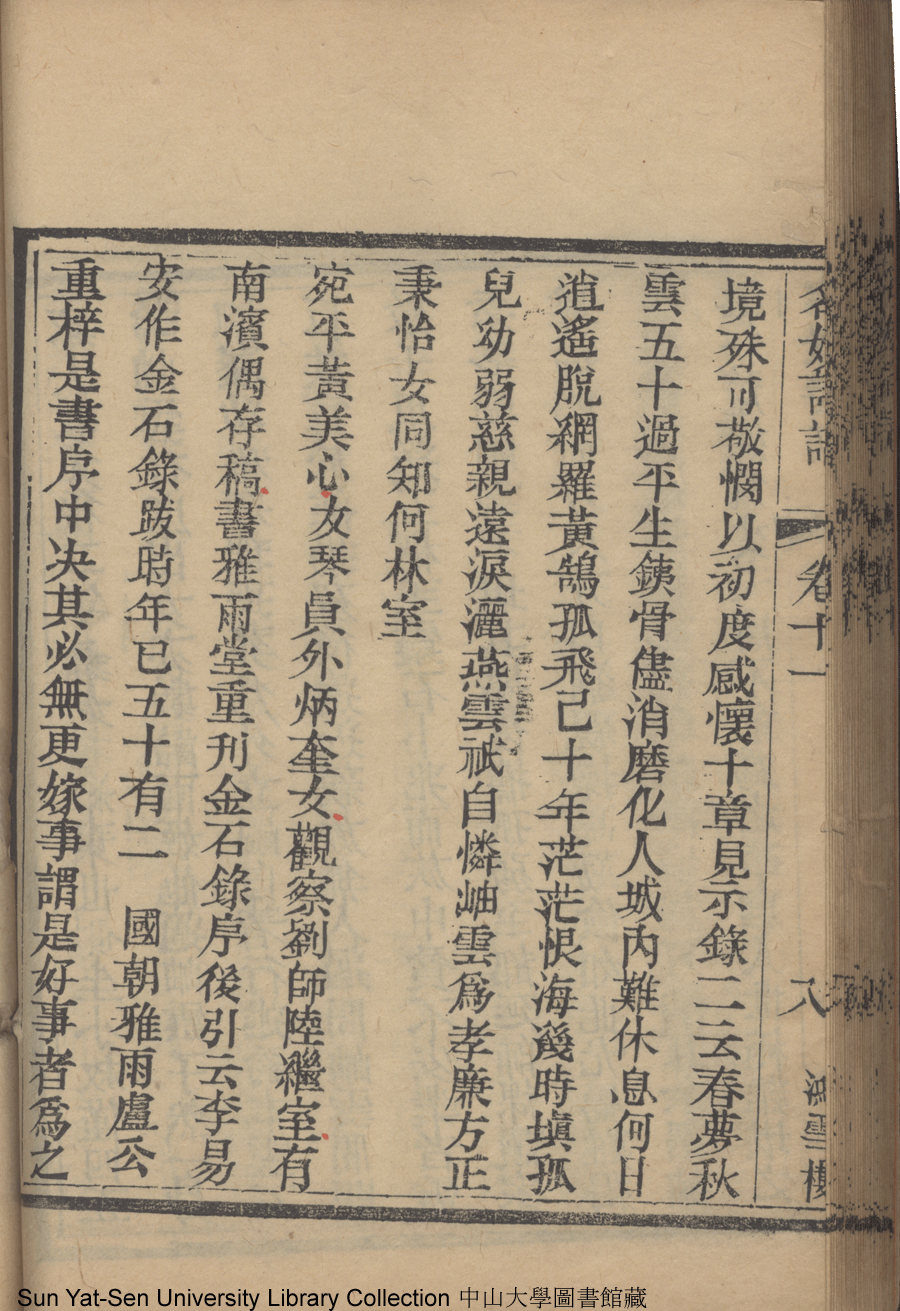 名媛詩話 卷十一 八 鴻雪樓
境殊可敬憫以初度感懷十章見示錄二云春夢秋
雲五十過平生銕骨儘消磨化人城內難休息何日
逍遙脫網羅黃鵠孤飛己十年茫茫恨海幾時塡孤
兒幼弱慈親遠淚灑燕雲祇自憐岫雲爲孝廉方正
秉怡女同知何林室
宛平黃美心友琴員外炳奎女觀察劉師陸繼室有
南濱偶存稿書雅雨堂重刊金石錄序後引云李易
安作金石錄跋時年已五十有二 國朝雅雨盧公
重梓是書序中決其必無更嫁事謂是好事者爲之
Sun Yat-Sen University Library Collection 中山大學圖書館藏